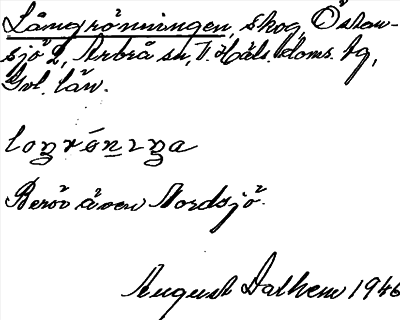 Långrönningen, skog, Östan-
sjö 2, Arbrå sn, V. Häls. doms. tg,
Gvl. län.
Berör även Nordsjö.
August Dalhem 1946